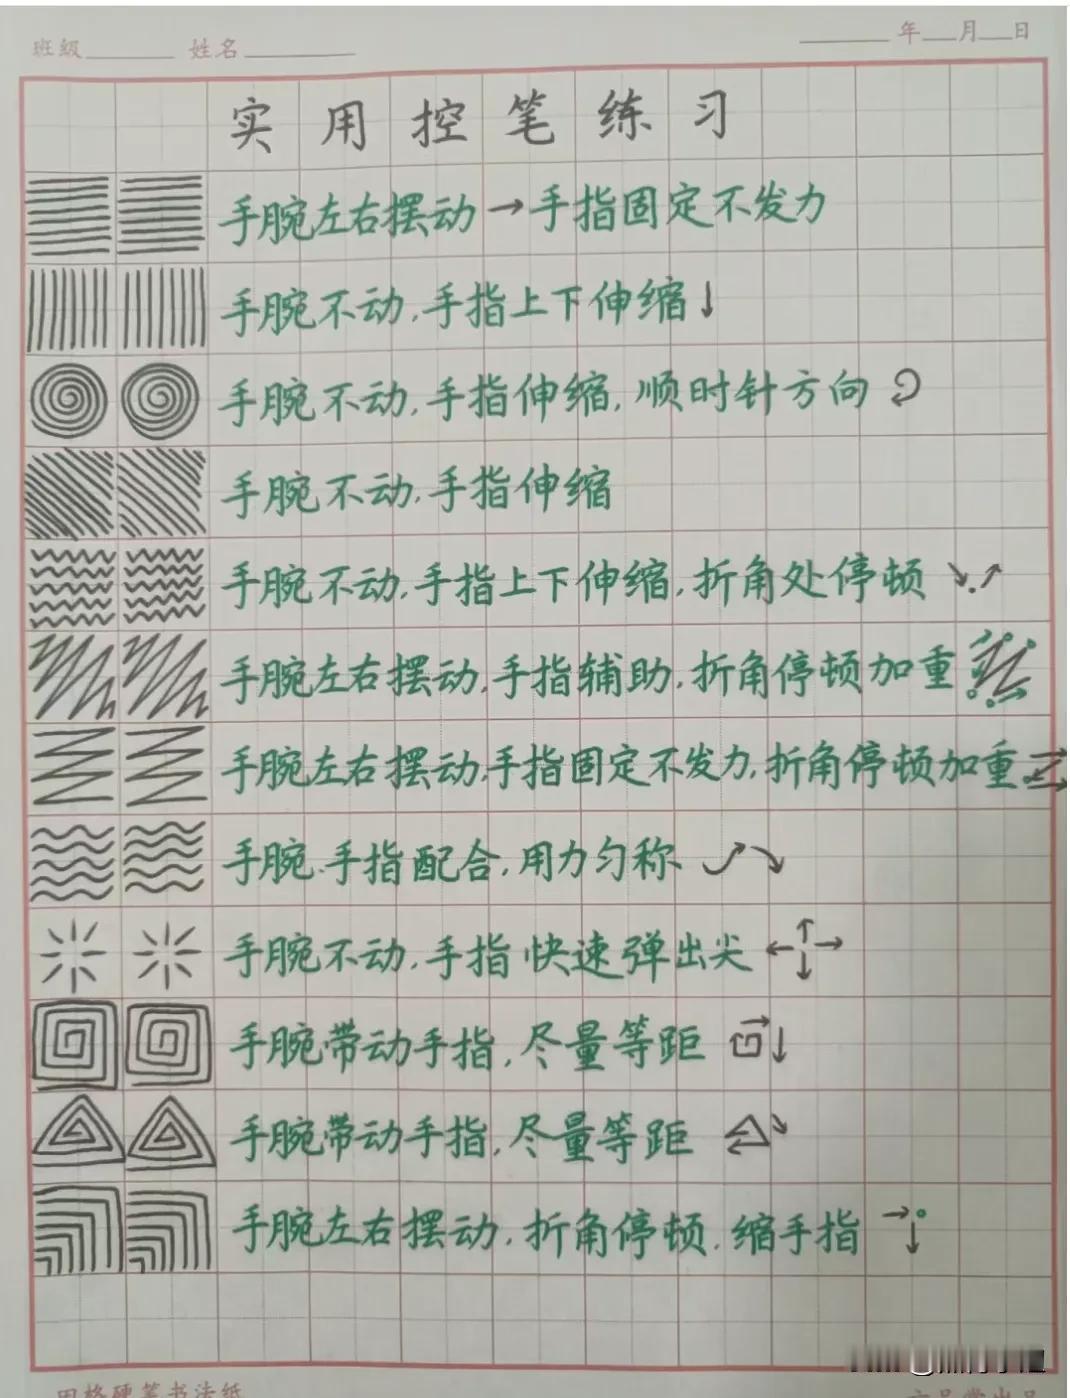 班级 姓名 年 月 日
实用控笔练习
手腕左右摆动→手指固定不发力
手腕不动,手指上下伸缩↓
手腕不动,手指伸缩,顺时针方向
手腕不动,手指伸缩
手腕不动,手指上下伸缩,折角处停顿
手腕左右摆动,手指辅助,折角停顿加重
手腕左右摆动,手指固定不发力,折角停顿加重
手腕.手指配合,用力匀称
手腕不动,手指快速弹出尖
手腕带动手指,尽量等距
手腕带动手指,尽量等距
手腕左右摆动,折角停顿,缩手指
田格硬笔书法纸